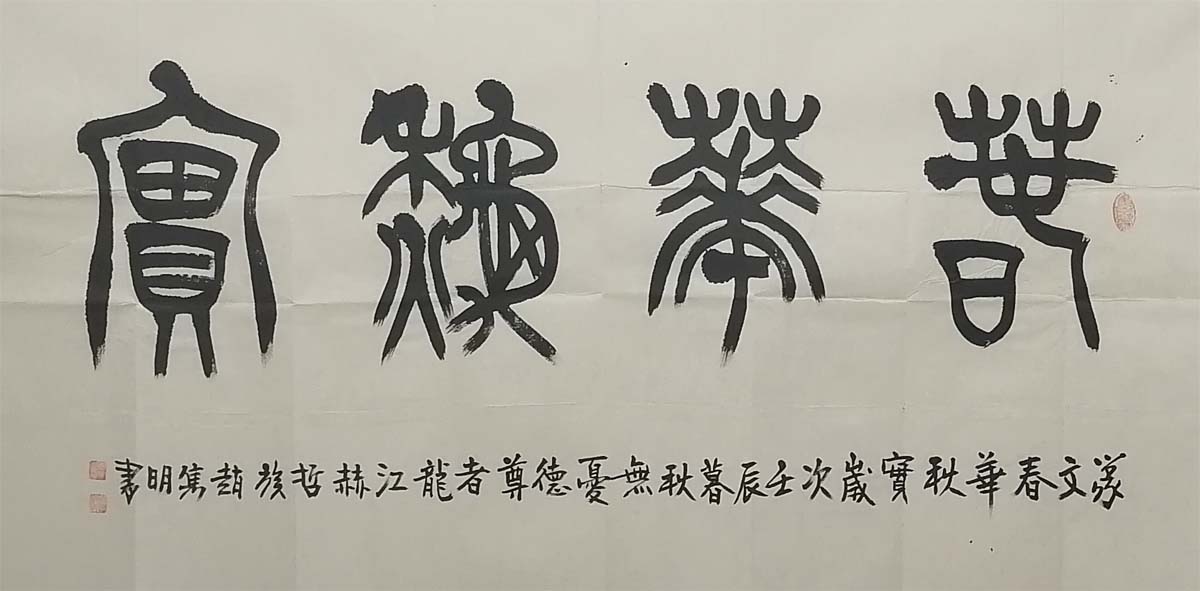 春華秋實
篆文春華秋實歲次壬辰暮秋無憂德尊者龍江赫哲族趙雋明書